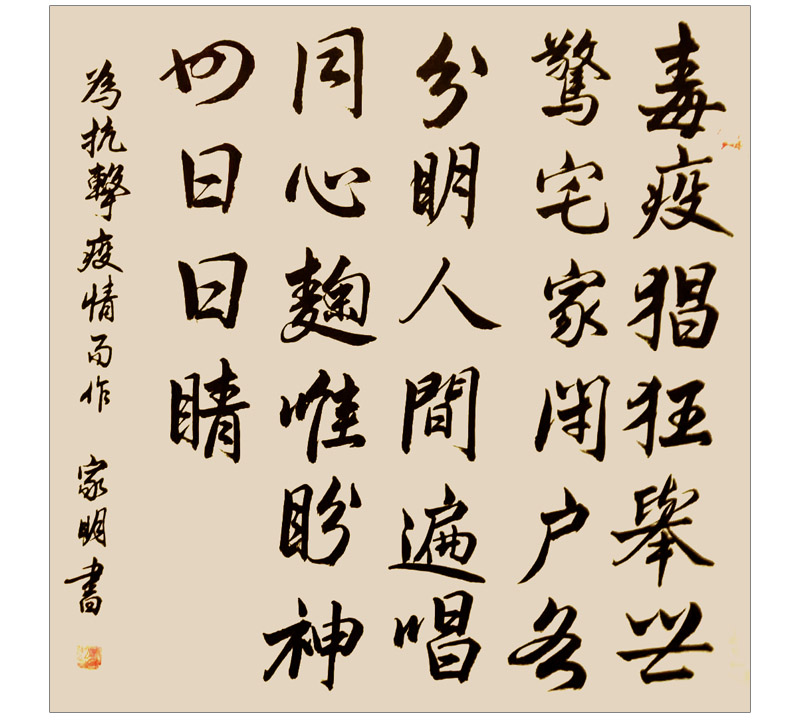 毒疫猖狂舉世
驚宅家閉户各
分明人間遍唱
同心麴唯盼神
州日日晴
為抗擊疫情而作 家明書